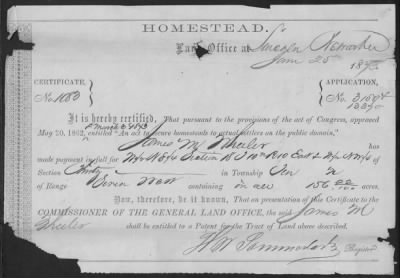 HOMESTEAD.
Land Office at Lincoln Nebraska
Jan 25th 18
CERTIFICATE, APPLICATION,
No. 1083 No.
It is hereby certified, That pursuant to the provisions of the act of Congress, approved
May 20, 1862, entitled "An act to secure homesteads to actual settlers on the public domain,"
James M Wheeler
has
made payment in full for of
Section in Township Ten N
of Range Seven West containing 156 acres.
Now, therefore, be it known, That on presentation of this Certificate to the
COMMISSIONER OF THE GENERAL LAND OFFICE, the said James M
Wheeler shall be entitled to a Patent for the Tract of Land above described.
Register.